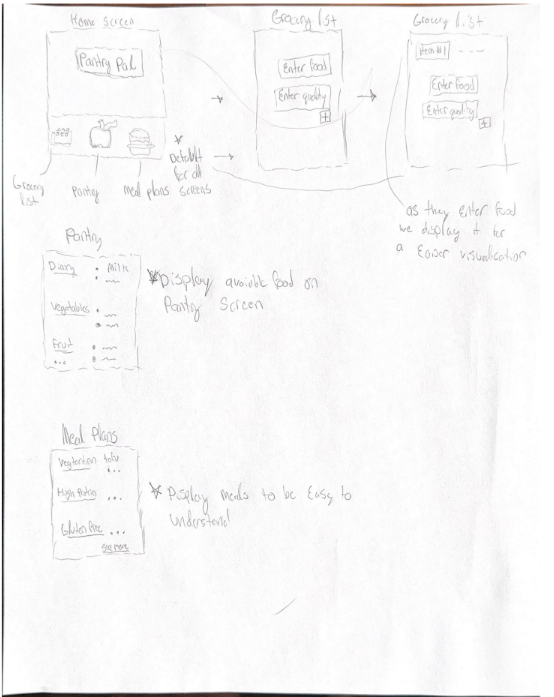 Home screen
Pantry Pal
Grocery list
Pantry
Meal plans
* Default for all screens
Grocery list
Enter food
Enter quality
+
Grocery list
Item #1
Enter food
Enter quality
+
as they Enter food
we display it for
a Easier visualication
Pantry
Diary
Milk
Vegetables
Fruit
...
* Display avaible food on
Pantry Screen
Meal Plans
Vegetarian tofu
...
High Protein ...
Gluten free ...
See more
* Display meals to be Easy to
understand